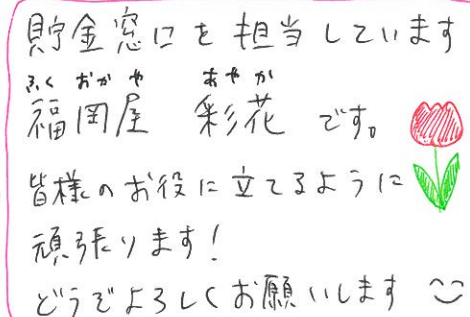 貯金窓口を担当しています
ふく おか や あや か
福岡屋 彩花 です。
皆様のお役に立てるように
頑張ります!
どうぞよろしくお願いします